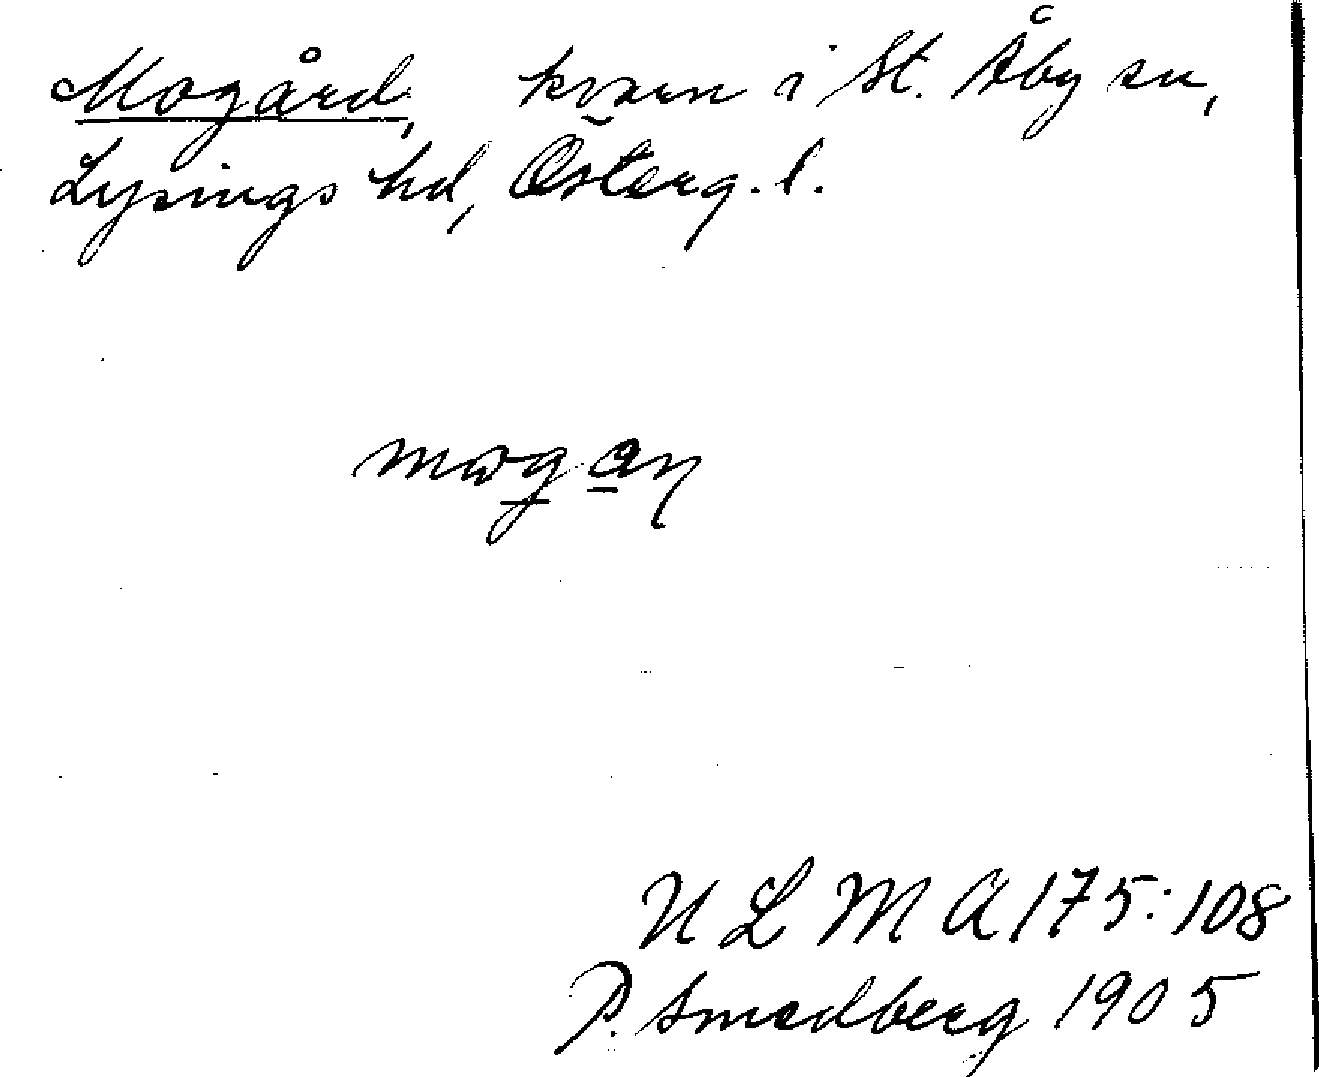 Mogård, kvarn i St. Åby sn,
Lysings hd, Österg. l.
mogan
N L M A 175:108
P. Smedberg 1905